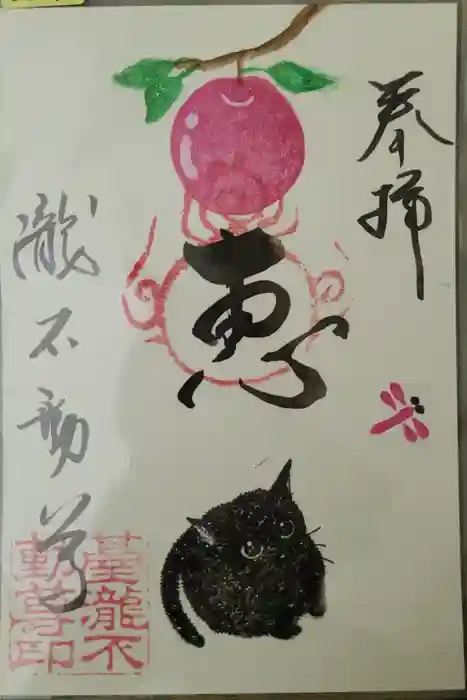 奉拝
恵
瀧不動尊
瀧不
動尊印